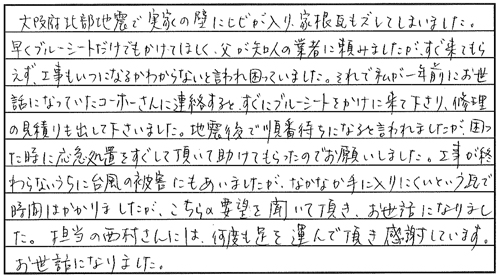 大阪府北部地震で実家の壁にヒビが入り、家根瓦もズレてしまいました。
早くブルーシートだけでもかけてほしく、父が知人の業者に頼みましたが、すぐ来てもら
えず、工事もいつになるかわからないと言われ困っていました。それで私が一年前にお世
話になっていたコーホーさんに連絡すると、すぐにブルーシートをかけに来て下さり、修理
の見積りも出して下さいました。地震後で順番待ちになると言われましたが、困っ
た時に応急処置をすぐして頂いて助けてもらったのでお願いしました。工事が終
わらないうちに台風の被害にもあいましたが、なかなか手に入りにくいという瓦で
時間はかかりましたが、こちらの要望を聞いて頂き、お世話になりまし
た。担当の西村さんには、何度も足を運んで頂き感謝しています。
お世話になりました。